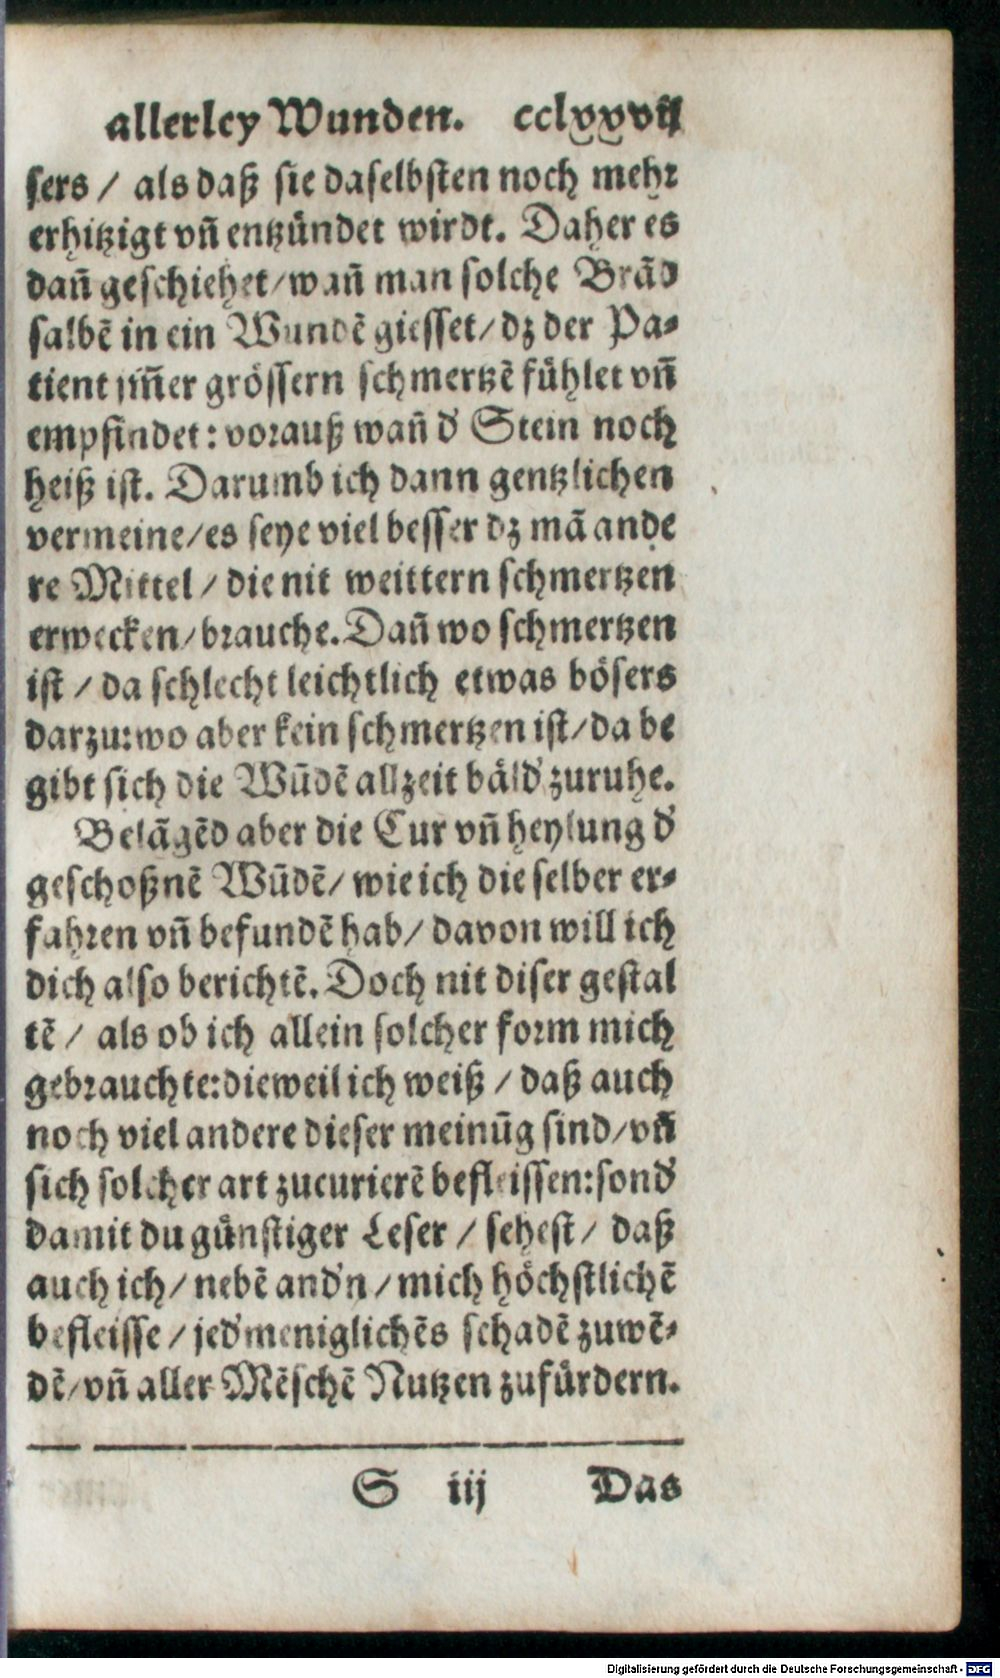 allerley Wunden. cclxxvij
sers / als daß sie daselbsten noch mehr
erhitzigt vñ entzündet wirdt. Daher es
dañ geschiehet / wañ man solche Brãd
salbẽ in ein Wundẽ giesset / dz der Pa-
tient im̃er grössern schmertzẽ fühlet vñ
empfindet: vorauß wañ d' Stein noch
heiß ist. Darumb ich dann gentzlichen
vermeine / es seye viel besser dz mã ande
re Mittel / die nit weittern schmertzen
erwecken / brauche. Dañ wo schmertzen
ist / da schlecht leichtlich etwas bösers
darzu: wo aber kein schmertzen ist / da be
gibt sich die Wũdẽ allzeit bäld' zuruhe.
Belãgẽd aber die Cur vñ heylung d'
geschoßnẽ Wũdẽ / wie ich die selber er-
fahren vñ befundẽ hab / davon will ich
dich also berichtẽ. Doch nit diser gestal
tẽ / als ob ich allein solcher form mich
gebrauchte: dieweil ich weiß / daß auch
noch viel andere dieser meinũg sind / vñ
sich solcher art zucurierẽ befleissen: sond'
damit du günstiger Leser / sehest / daß
auch ich / nebẽ and'n / mich höchstlichẽ
befleisse / jed'meniglichẽs schadẽ zuwẽ-
dẽ / vñ aller Mẽschẽ Nutzen zufürdern.
S iij Das
Digitalisierung gefördert durch die Deutsche Forschungsgemeinschaft - DFG